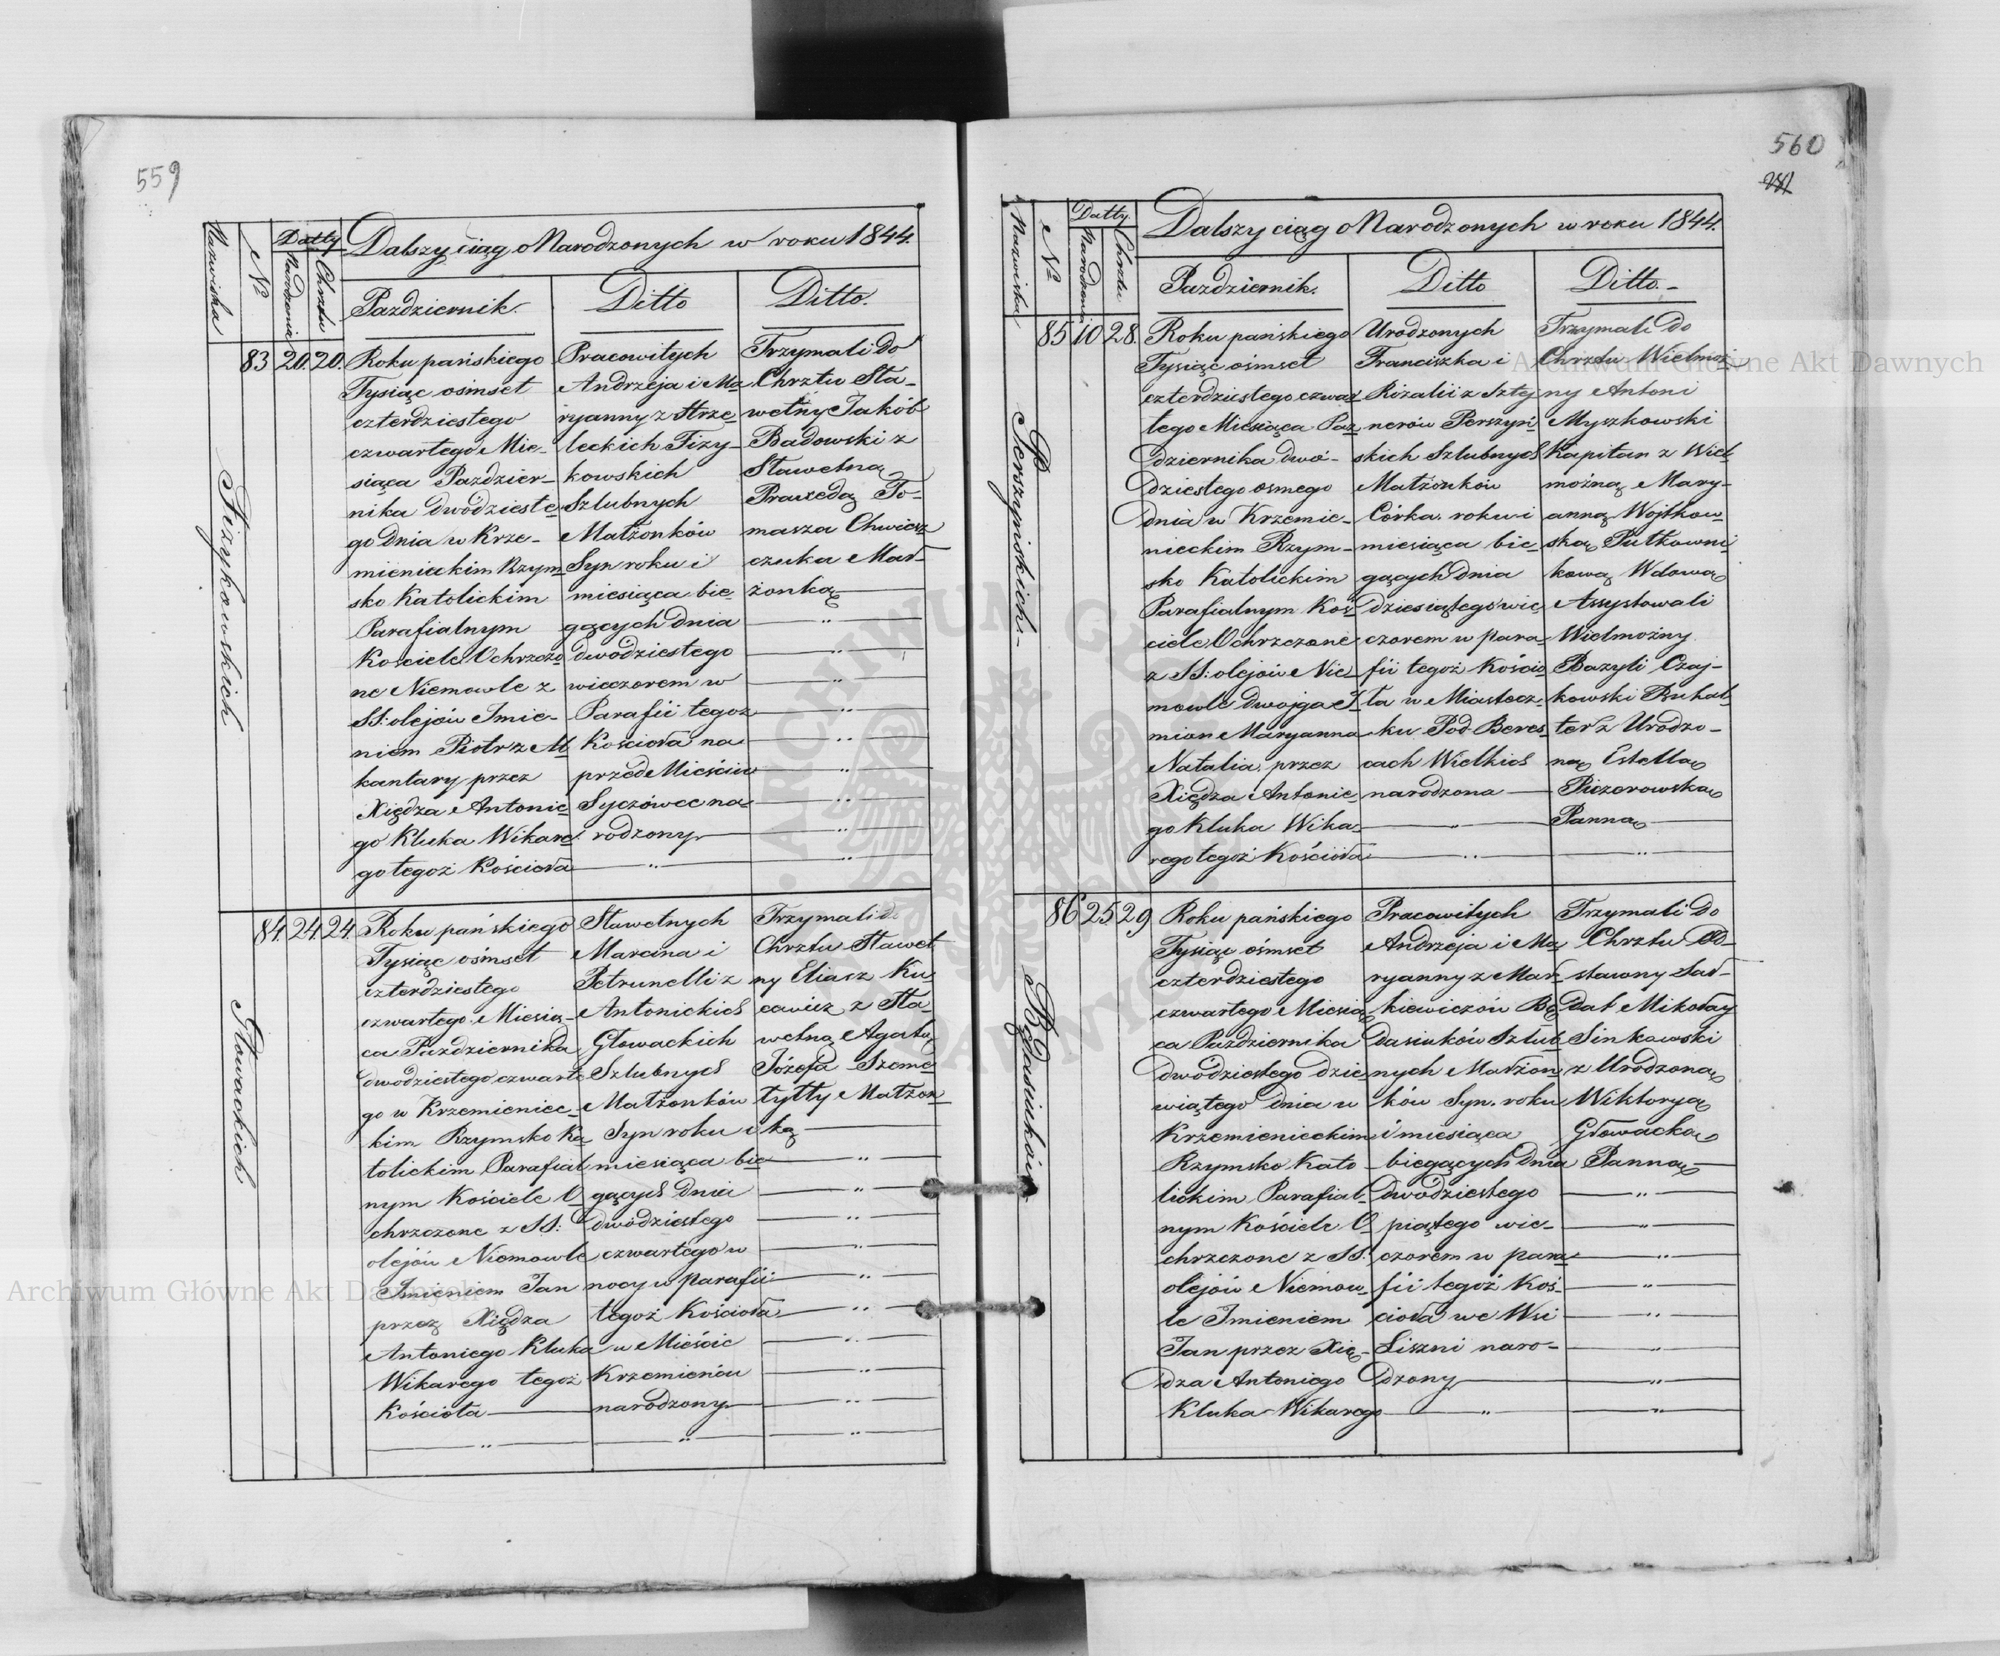 559
Nazwiska
N
Datty
Narodzenia
Chrztu
Dalszy ciąg Narodzonych w roku 1844.
Pazdziernik.
Ditto
Ditto.
Fizykowskich
83
20.
20.
Roku pańskiego
Tysiąc ośmset
czterdziestego
czwartego Mie-
siąca Pazdzier-
nika dwódzieste-
go dnia w Krze-
mienieckim Rzym-
sko Katolickim
Parafialnym
Kościele Ochrzczo
ne Niemowle z
SS: olejów Imie-
niem Piotr z M
kantary przez
Xiędza Antonie-
go Kluka Wikare-
go tegoż Kościoła
Pracowitych
Andrzeja i Ma-
ryanny z Strze-
leckich Fizy-
kowskich
Szlubnych
Małżonków
Syn roku i
miesiąca bie-
gących dnia
dwódziestego
wieczorem w
Parafii tegoż
Kościoła na
przedMieściu
Syczówce na-
rodzony
Trzymali do
Chrztu Sła-
wetny Jakób
Badowski z
Sławetną
Praxedą To-
masza Chwiesz
czuka Mał-
żonką
Głowackich
84
24
24.
Roku pańskiego
Tysiąc ośmset
czterdziestego
czwartego Miesią-
ca Pazdziernika
dwódziestego czwarte
go w Krzemieniec-
kim Rzymsko Ka-
tolickim Parafial
nym Kościele O-
chrzczone z SS:
olejów Niemowle
Imieniem Jan
przez Xiędza
Antoniego Kluka
Wikarego tegoż
Kościoła
Sławetnych
Marcina i
Petrunelli z
Antonickich
Głowackich
Szlubnych
Małżonków
Syn roku i
miesiąca bie-
gących dnia
dwódziestego
czwartego w
nocy w parafii
tegoż Kościoła
w Mieście
Krzemieńcu
narodzony
Trzymali do
Chrztu Sławet
ny Eliasz Ku-
cewicz z Sła-
wetną Agatą
Józefa Szeme
tyłły Małżon-
ką
560
Nazwiska
N
Datty.
Narodzenia
Chrztu
Dalszy ciąg Narodzonych w roku 1844.
Pazdziernik.
Ditto
Ditto.
Perszyńskich.
85
10
28.
Roku pańskiego
Tysiąc ośmset
czterdziestego czwar-
tego Miesiąca Paz-
dziernika dwó-
dziestego osmego
dnia w Krzemie-
nieckim Rzym-
sko Katolickim
Parafialnym Koś-
ciele Ochrzczone
z SS: olejów Nie-
mowle dwojga I-
mion Maryanna
Natalia, przez
Xiędza Antonie-
go Kluka Wika-
rego tegoż Kościoła
Urodzonych
Franciszka i
Rozalii z Sztej
nerów Perszyń-
skich Szlubnych
Małżonków
Córka, roku i
miesiąca bie-
gących dnia
dziesiątego wie-
czorem w para-
fii tegoż Kościo-
ła w Miastecz-
ku Pod Beres-
cach Wielkich
narodzona
Trzymali do
Chrztu Wielmoż-
ny Antoni
Myszkowski
Kapitan z Wiel-
możną Mary-
anną Wojtkow-
ską Pułkowni-
kową Wdową
Assystowali
Wielmożny
Bazyli Czaj-
kowski Buhal-
ter z Urodzo-
ną Estellą
Piezorowską
Panną
Bądasiuków
86
25
29
Roku pańskiego
Tysiąc ośmset
czterdziestego
czwartego Miesią-
ca Pazdziernika
dwódziestego dzie-
wiątego dnia w
Krzemienieckim
Rzymsko Kato-
lickim Parafial-
nym Kościele O-
chrzczone z SS:
olejów Niemow-
le Imieniem
Jan przez Xię-
dza Antoniego
Kluka Wikarego
Pracowitych
Andrzeja i Ma-
ryanny z Mań-
kiewiczów Bą-
dasiuków Szlub-
nych Małżon-
ków Syn, roku
i miesiąca
biegących dnia
dwódziestego
piątego wie-
czorem w para-
fii tegoż Koś-
cioła we Wsi
Liszni naro-
dzony
Trzymali do
Chrztu Od-
stawny Soł-
dat Mikołay
Sinkowski
z Urodzoną
Wiktoryą
Głowacką
Panną
Archiwum Główne Akt Dawnych
Archiwum Główne Akt Dawnych